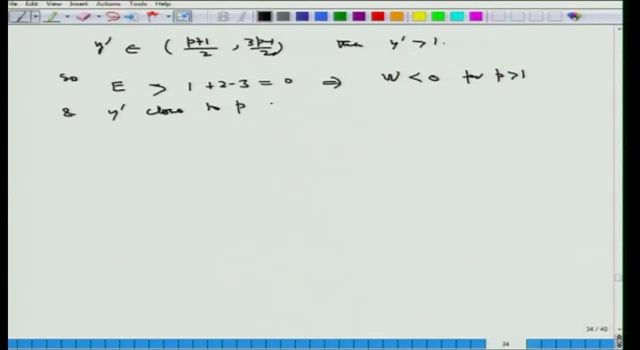 File Edit View Insert Actions Tools Help
y' ∈ ( p+1/2 , 3p-1/2 ) then y' > 1.
so E > 1 + 2 - 3 = 0 ⇒ W < 0 for p > 1
& y' close to p .
34 / 40
34